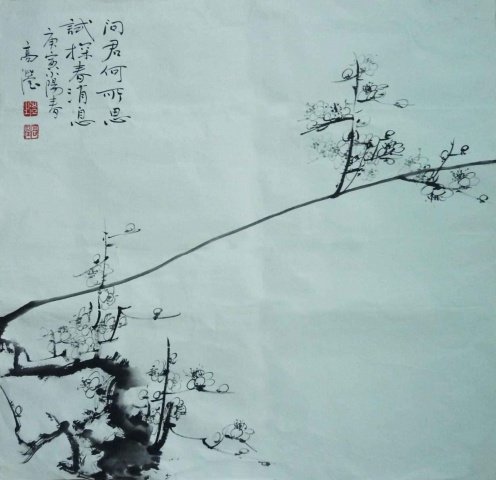 问君何所思
試探春消息
庚寅小陽春
高瀅